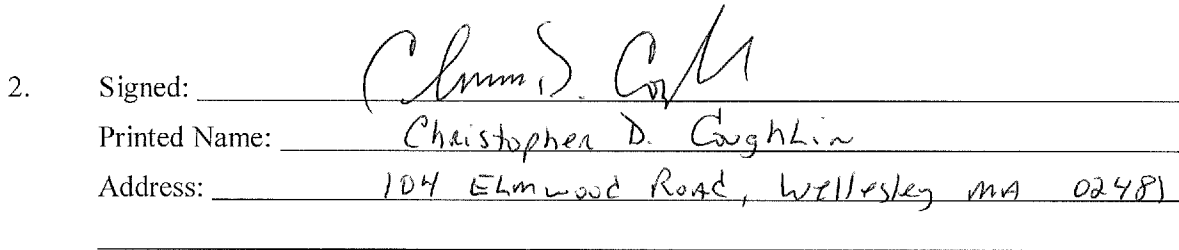 2. Signed:
Printed Name: Christopher D. Coughlin
Address: 104 Elmwood Road, Wellesley MA 02481